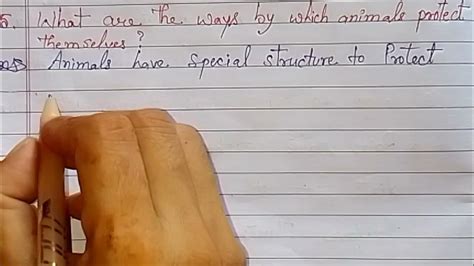 5. What are the ways by which animals protect
themselves?
Ans Animals have special structure to Protect